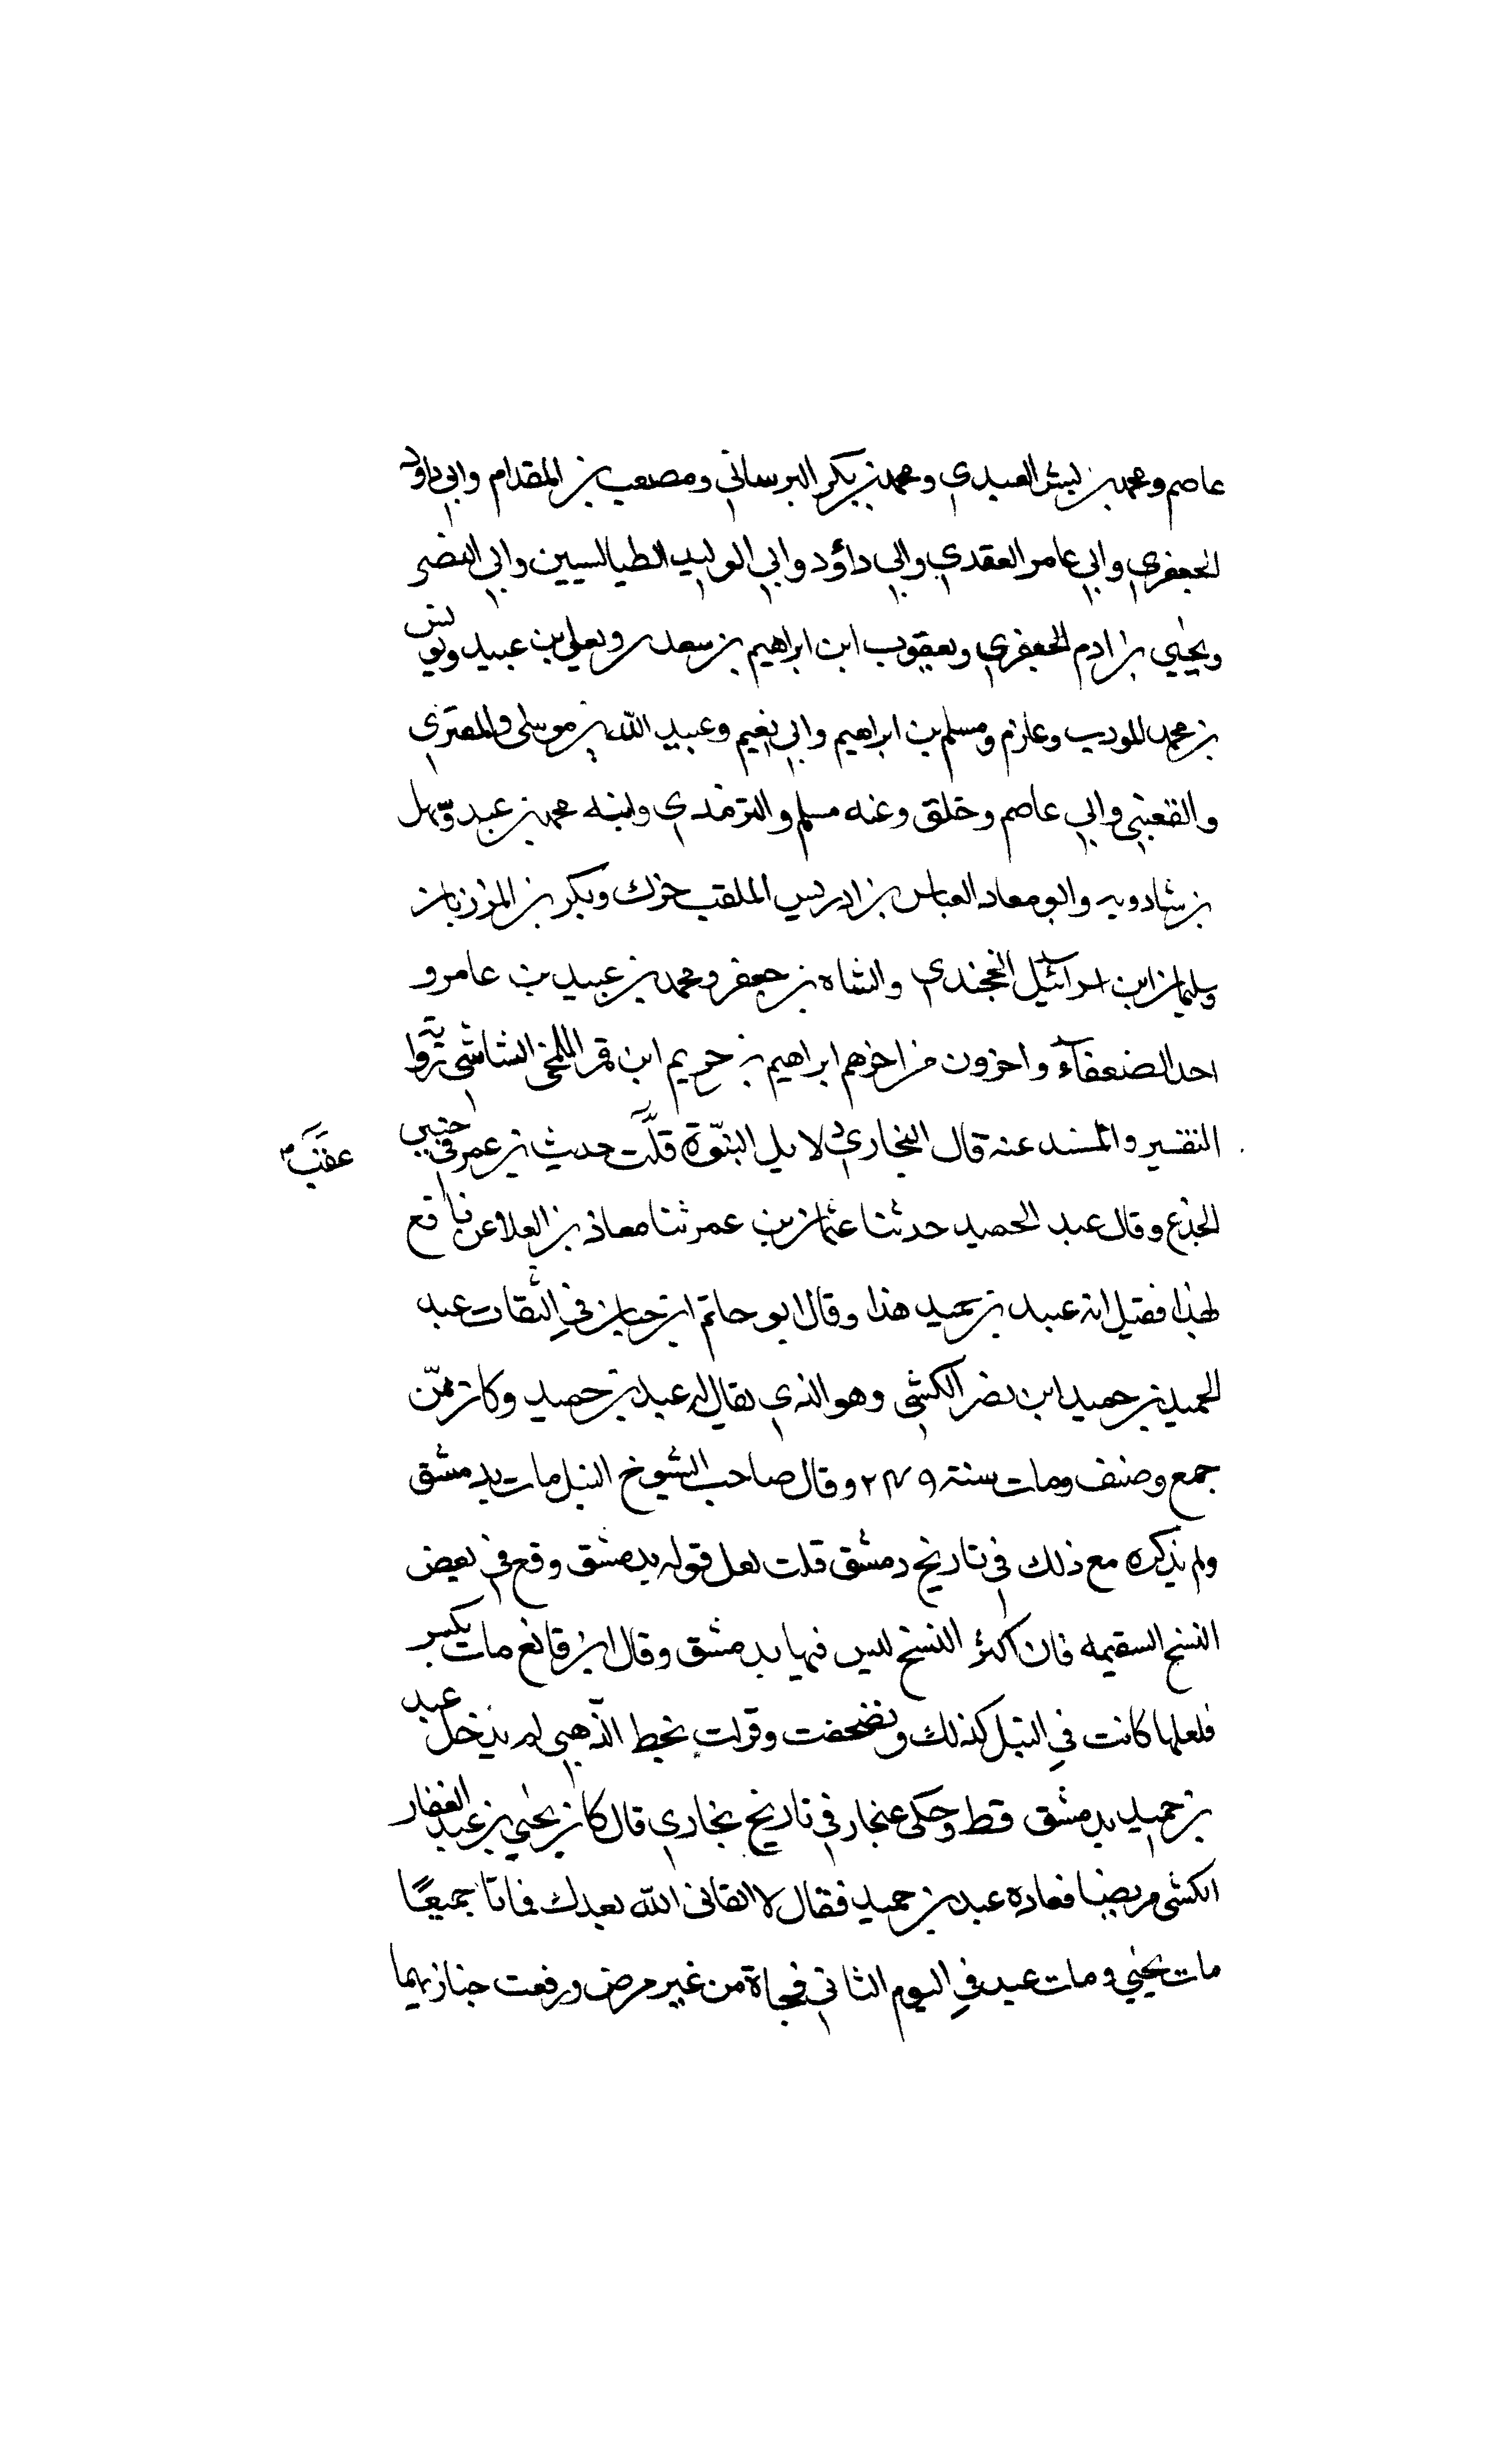 عاصم ومحمد بن بشر العبدي ومحمد بن بكر البرساني ومصعب بن المقدام وابي داؤد
الجعفري وابي عامر العقدي وابي داؤد وابي الوليد الطيالسيين وابي النضر
ويحيي بن ادم الجعفري ويعقوب ابن ابراهيم بن سعد ويعلي بن عبيد ويونس
بن محمد المودب وعارم ومسلم بن ابراهيم وابي نعيم وعبيد الله بن موسى والمقري
والقعنبي وابي عاصم وخلق وعنه مسلم والترمذي وابنه محمد بن عبد وسهل
بن شادويه وابو معاد العباس بن ادريس الملقب خرك وبكر بن المرزبان
وسليمان ابن اسرائيل الخجندي والشاه بن جعفر ومحمد بن عبيد بن عامر و
احد الضعفاء واخرون من اخرهم ابراهيم بن خريم ابن قمر اللخمي الشاشي رواية
التفسير والمسند عنه قال البخاري في دلايل النبوة قلت حديث بن عمر في حنين
عقب
الجذع وقال عبد الحميد حدثنا عثمان بن عمر ثنا معاذ بن العلا عن نافع
لهذا فقيل انه عبد بن حميد هذا وقال ابو حاتم ابن حبان في الثقات عبد
الحميد بن حميد ابن نصر الكشي وهو الذي يقال له عبد بن حميد وكان ممن
جمع وصنف ومات سنة ٢٤٩ وقال صاحب الشيوخ النبل مات بدمشق
ولم يذكره مع ذلك في تاريخ دمشق قلت لعل قوله بدمشق وقع في بعض
النسخ السقيمه فان اكثر النسخ ليس فيها بدمشق وقال ابن قانع مات بكسر
فلعلها كانت في النبل كذلك وتصحفت وقرات بخط الذهبي لم يدخل عبد
بن حميد بدمشق قط وحكى عنجار في تاريخ بخاري قال كان يحيي بن عبد الغفار
الكشي مريضا فعاده عبد بن حميد فقال لا ابقاني الله بعدك فماتا جميعًا
مات يحيي ومات عبد في اليوم الثاني فجاة من غير مرض ورفعت جنازتهما